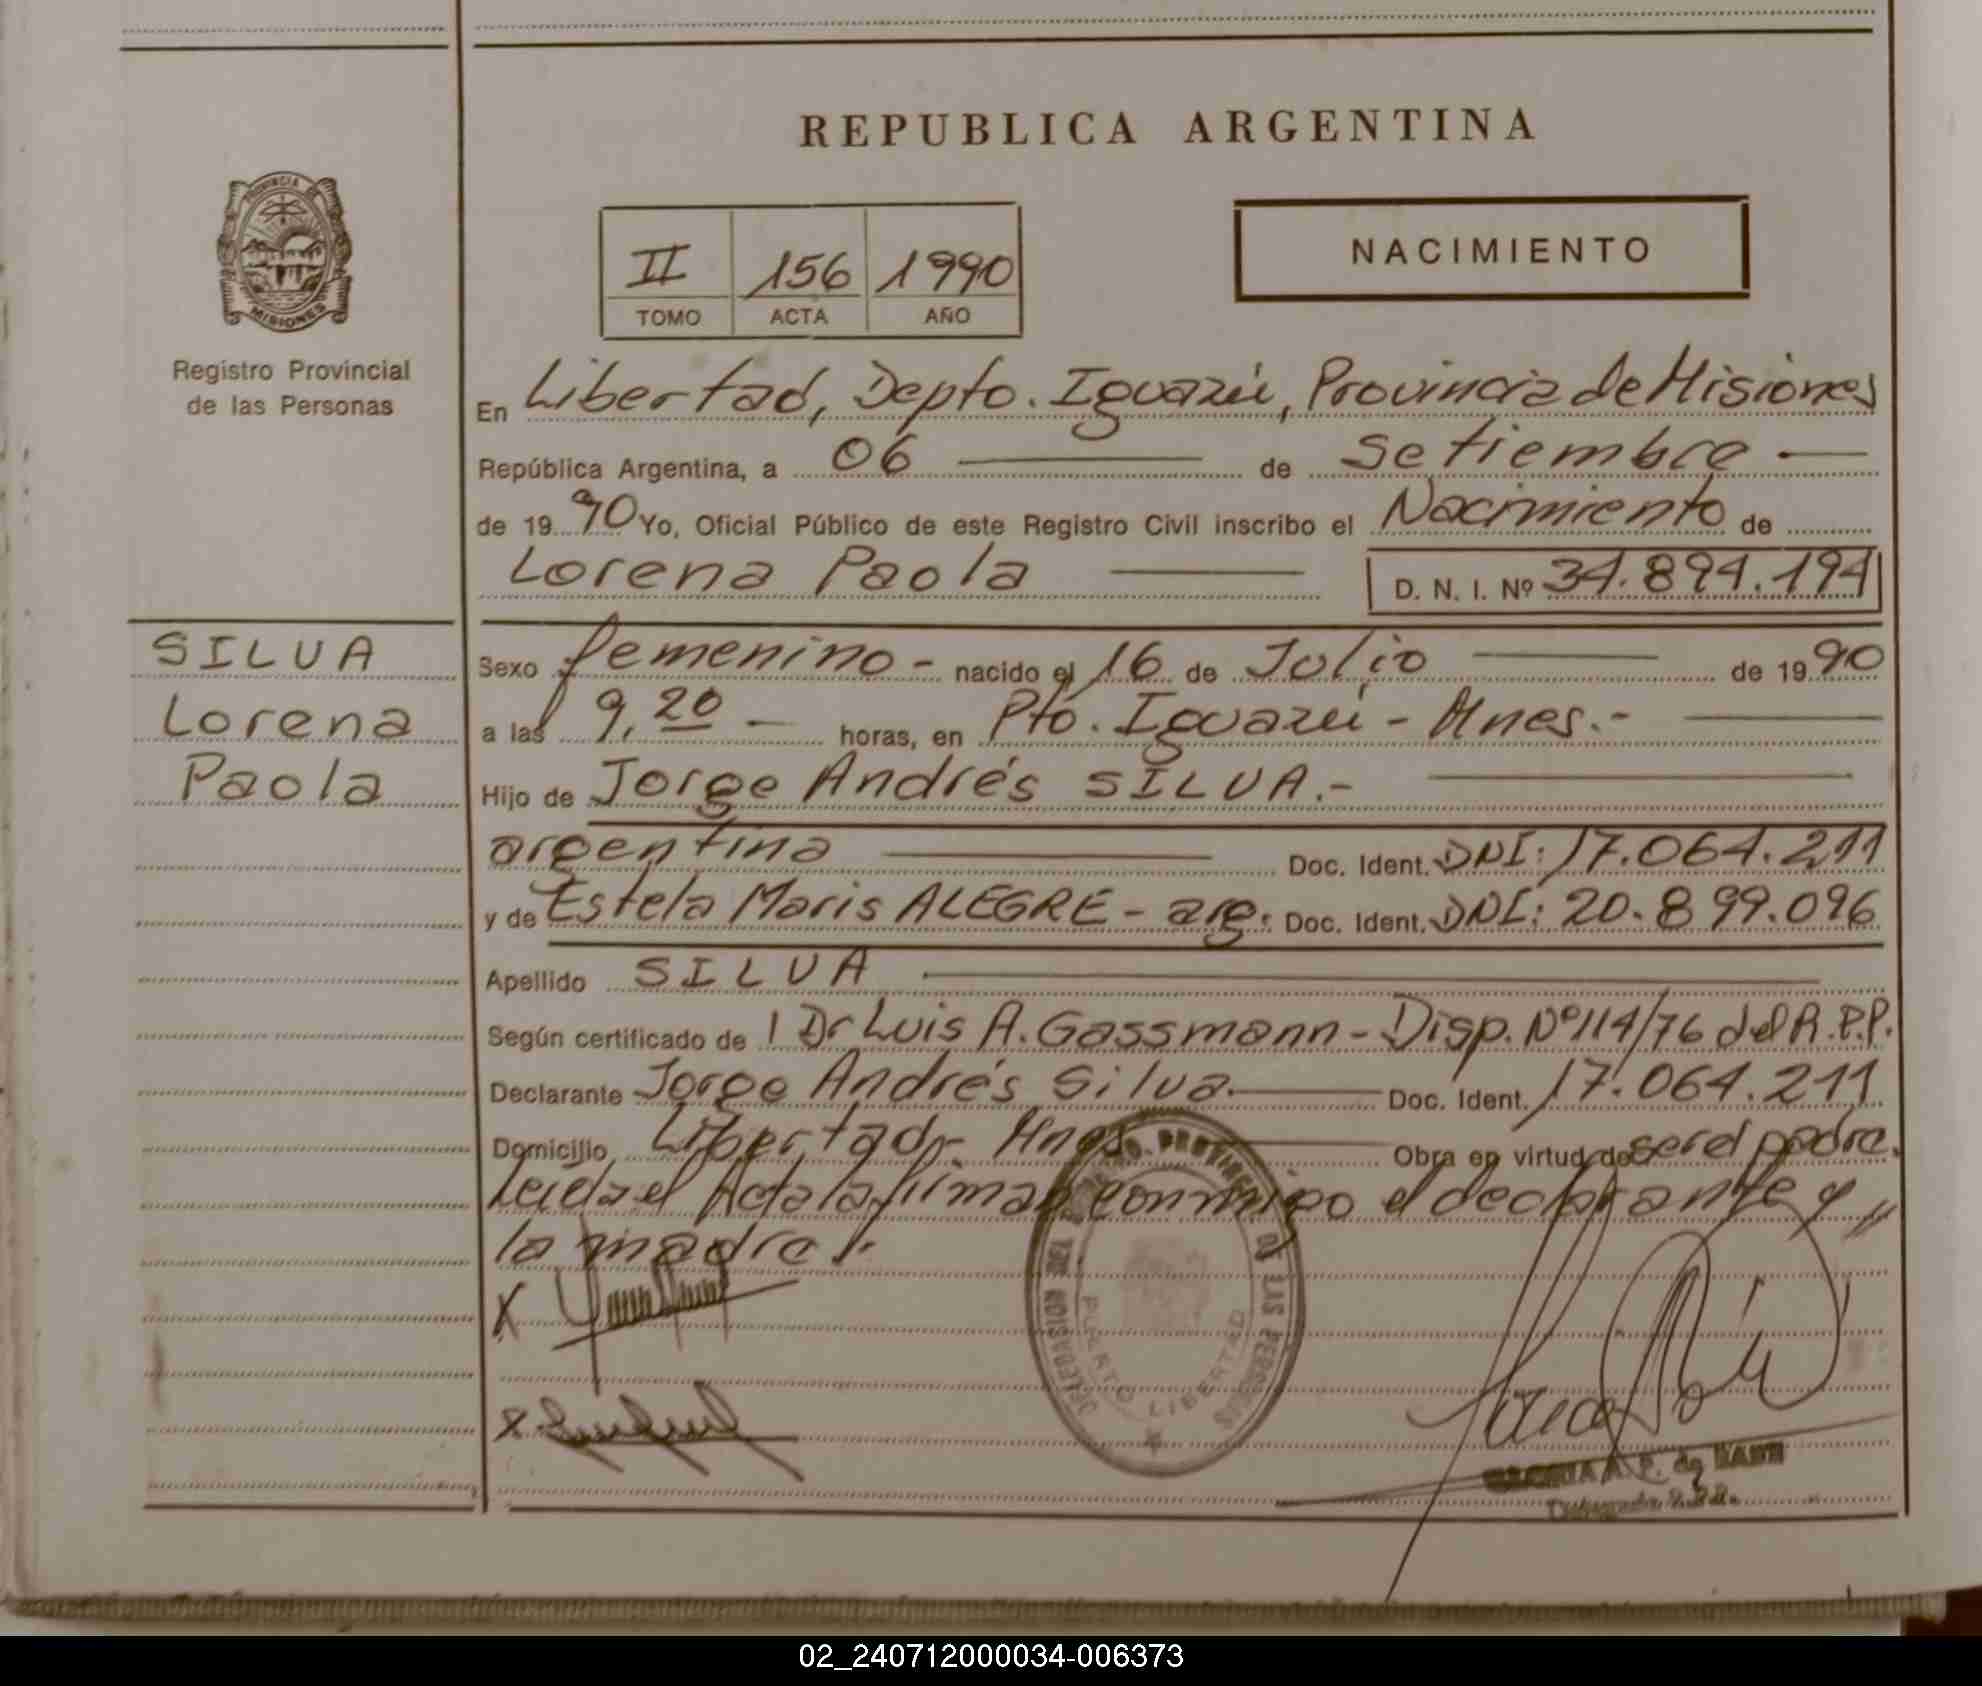 REPUBLICA ARGENTINA
PROVINCIA DE
MISIONES
Registro Provincial
de las Personas
II 156 1990
TOMO ACTA AÑO
NACIMIENTO
En Libertad, Depto. Iguazú, Provincia de Misiones
República Argentina, a 06 de Setiembre
de 1990 Yo, Oficial Público de este Registro Civil inscribo el Nacimiento de
Lorena Paola D. N. I. Nº 34.894.194
SILVA
Lorena
Paola
Sexo femenino - nacido el 16 de Julio de 1990
a las 9,20 horas, en Pto. Iguazú - Mnes.-
Hijo de Jorge Andrés SILVA.-
argentina Doc. Ident. DNI: 17.064.211
y de Estela Maris ALEGRE - arg. Doc. Ident. DNI: 20.899.096
Apellido SILVA
Según certificado de l Dr Luis A. Gassmann - Disp. Nº 114/76 del R.P.P.
Declarante Jorge Andrés Silva. Doc. Ident. 17.064.211
Domicilio Libertad - Mnes Obra en virtud de ser el padre.
Leida el Acta la firman conmigo el declarante y
la madre.
X
X
DELEGACION DEL REGISTRO PROVINCIAL DE LAS PERSONAS
PUERTO LIBERTAD
GLORIA A. P. de
02_240712000034-006373